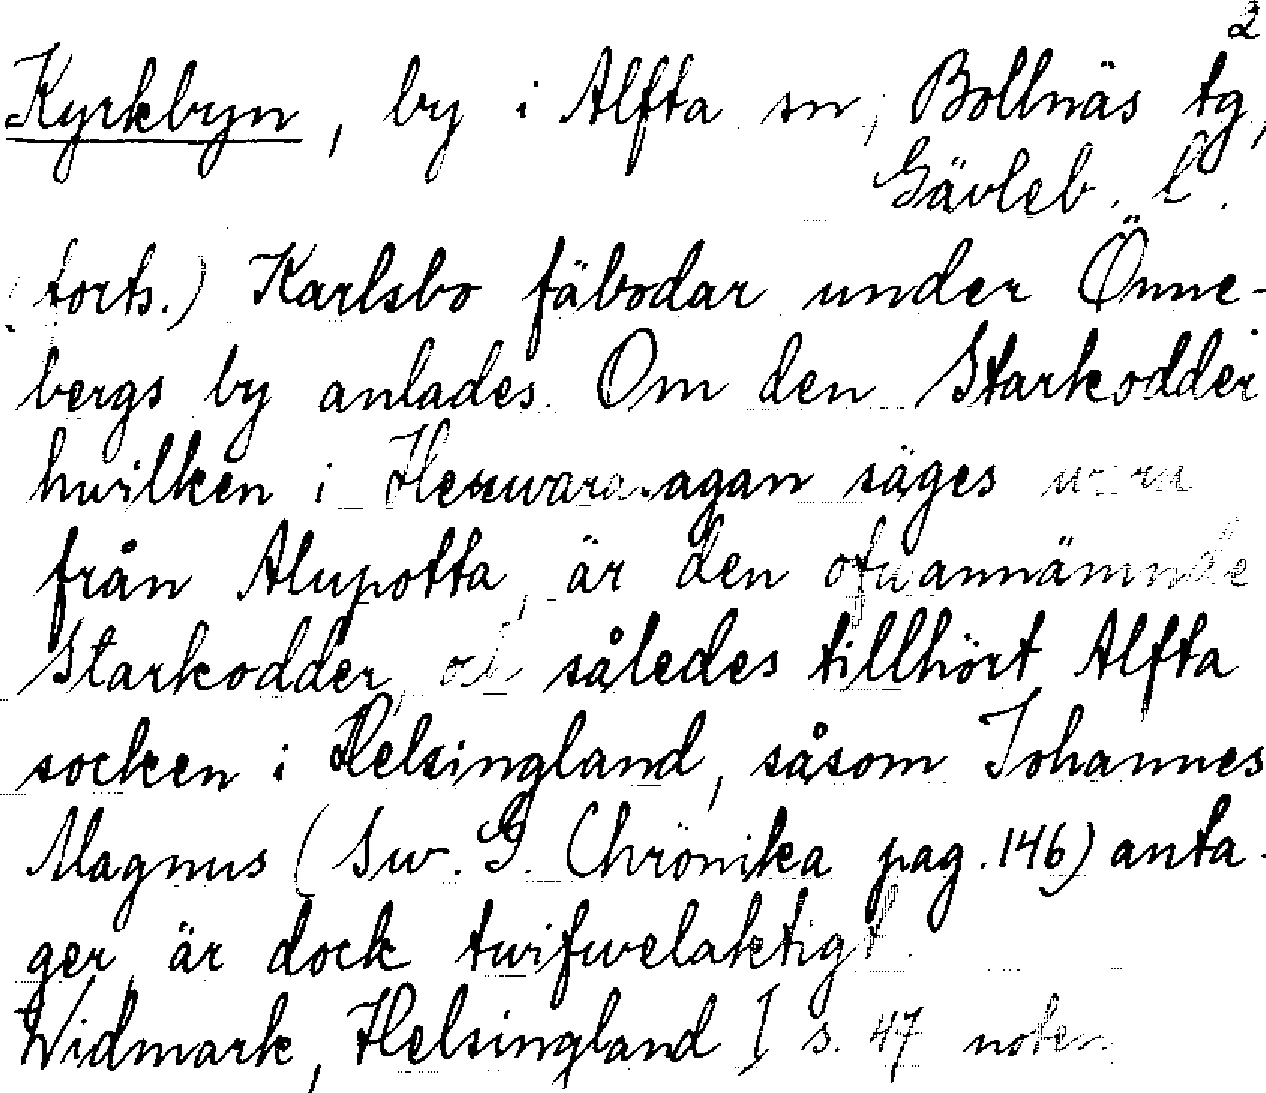 2
Kyrkbyn, by i Alfta sn, Bollnäs tg,
Gävleb. l.
(forts.) Karlsbo fäbodar under Önne-
bergs by anlades. Om den Starkodder
hvilken i säges vara
från Alupotta, är den ofvannämnde
Starkodder, och således tillhört Alfta
socken i Helsingland, såsom Johannes
Magnus (Sw. G. Chrönika pag. 146) anta-
ger, är dock twifwelaktigt.
Widmark, Helsingland I s. 47 noten.